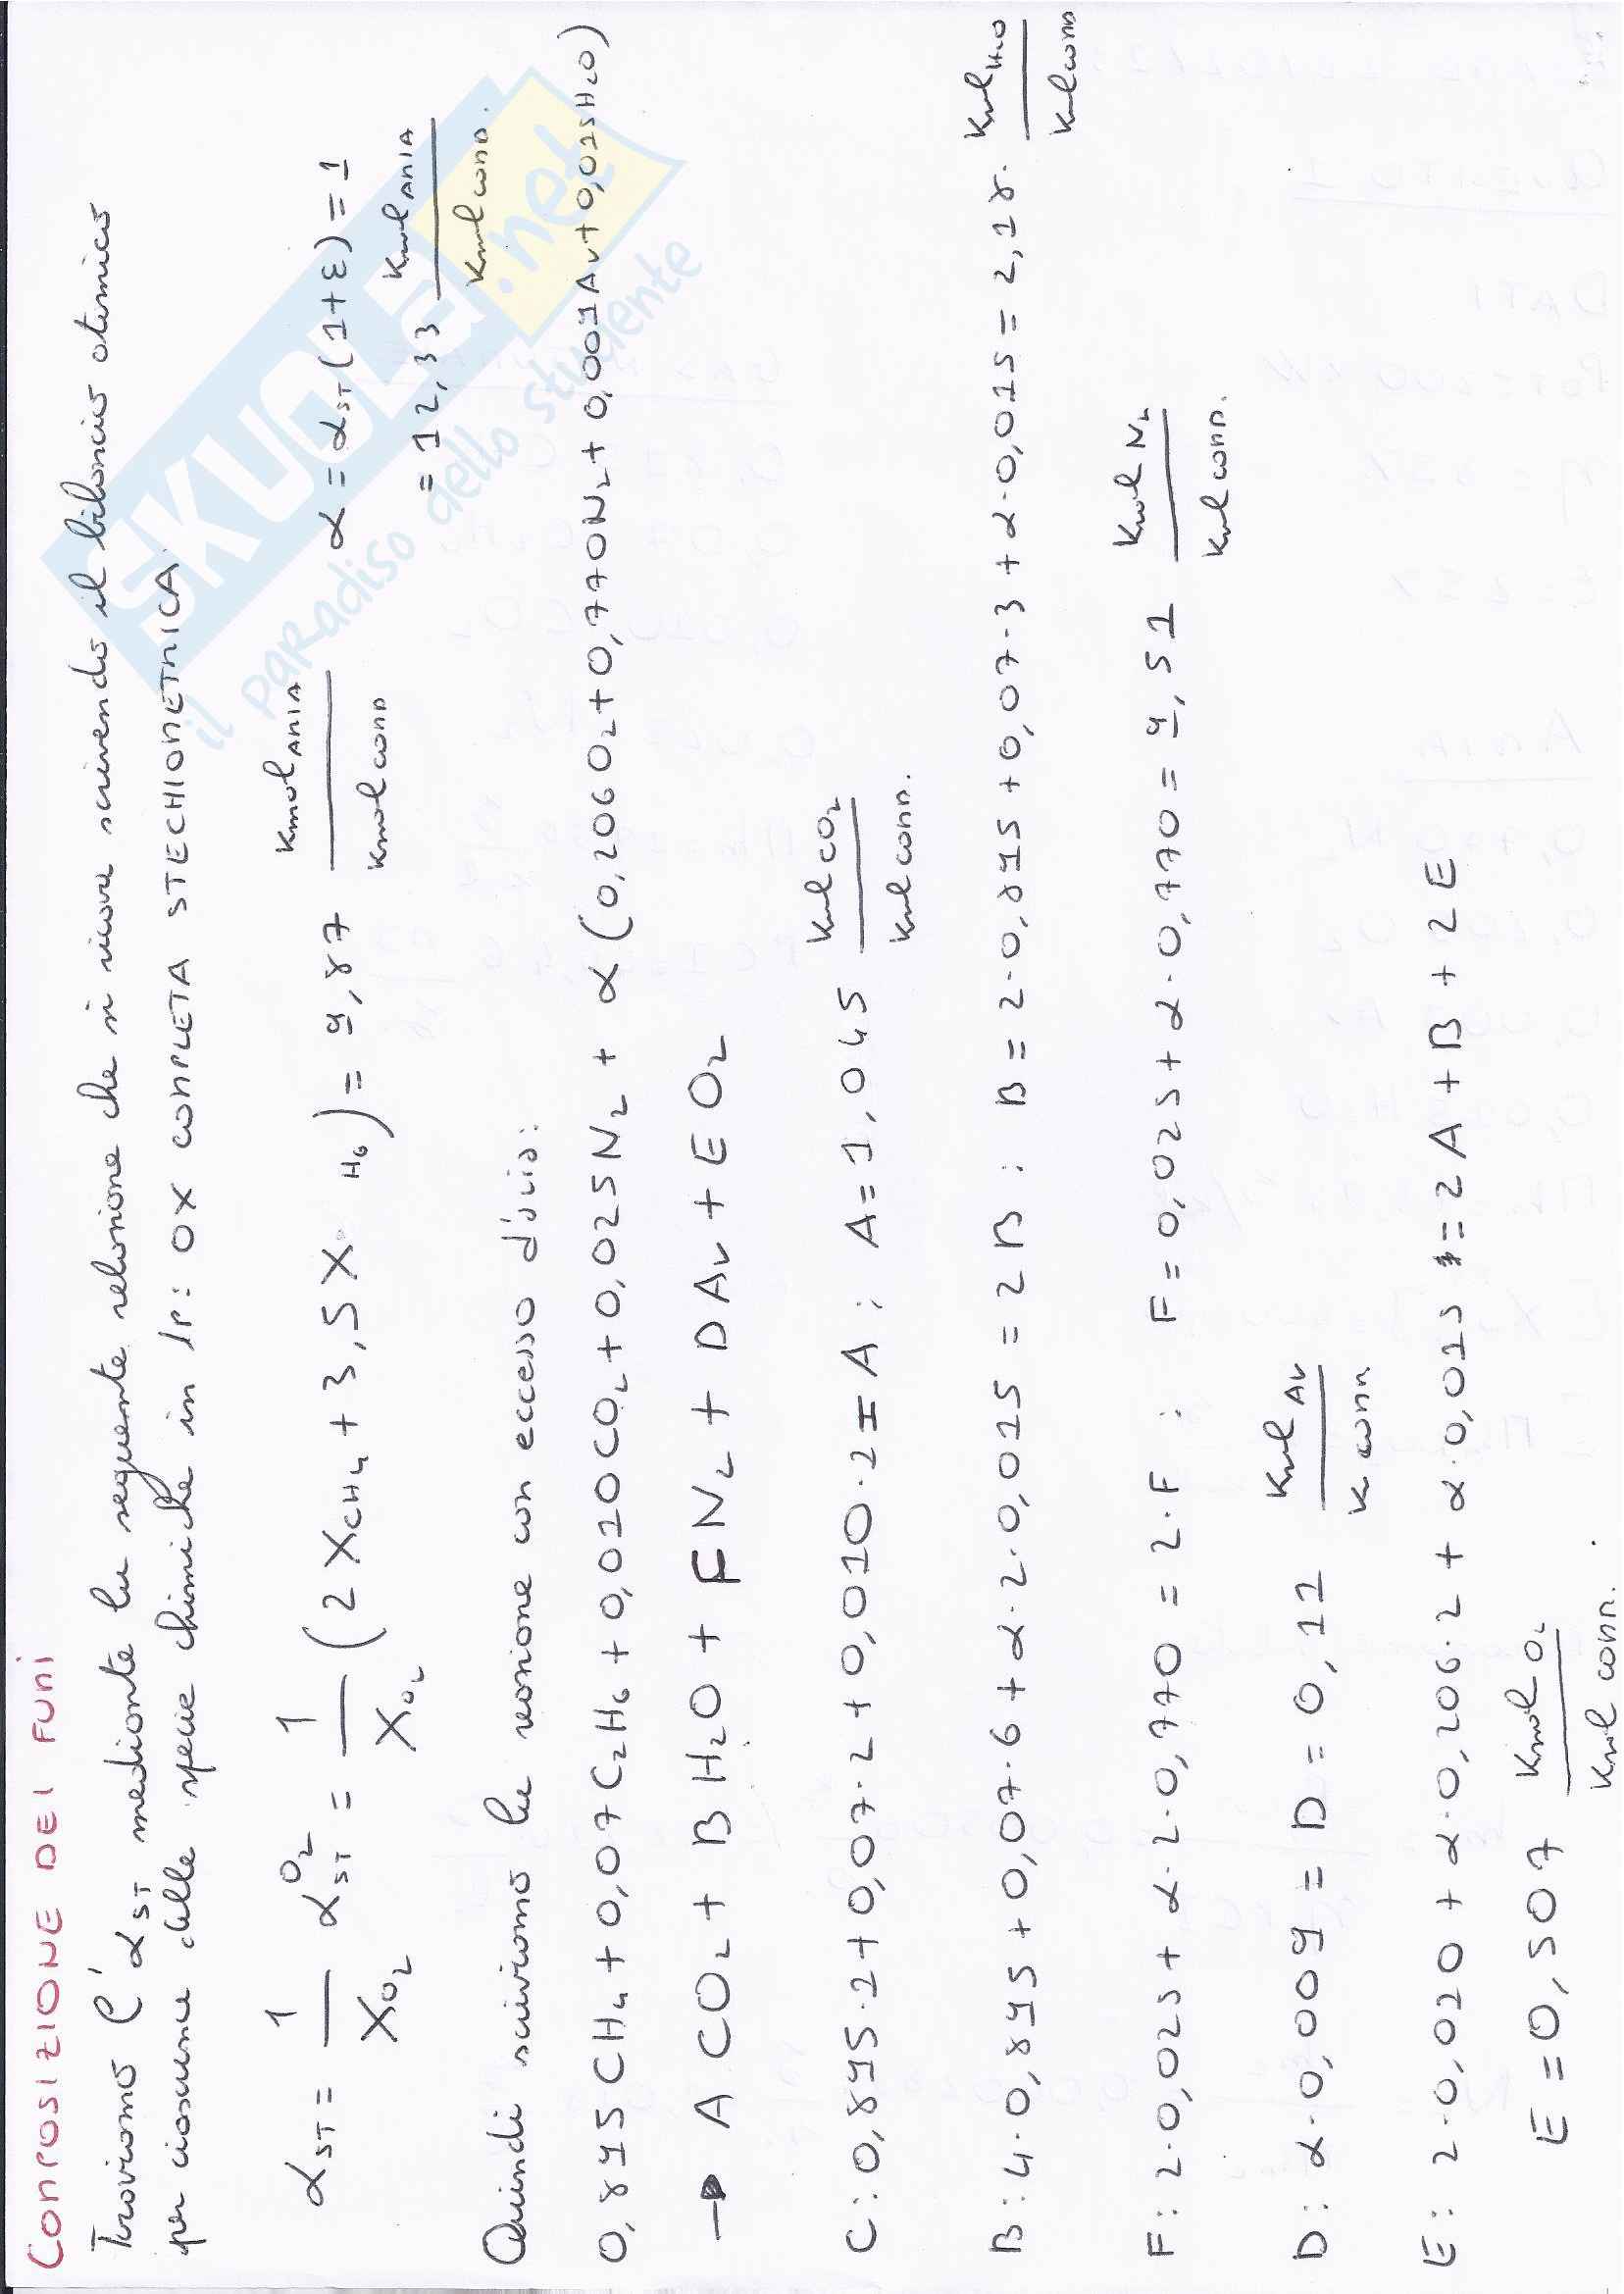 COMPOSIZIONE DEI FUMI
Troviamo l'α_ST mediante la seguente relazione che si ricava scrivendo il bilancio atomico
per ciascuna delle specie chimiche in Ip: OX COMPLETA STECHIOMETRICA.
α_ST = 1/X_O2 α_ST^O2 = 1/X_O2 (2 X_CH4 + 3,5 X H6) = 9,87 Kmol ARIA/Kmol comb α = α_ST (1+ε) = 1
= 12,33 Kmol ARIA/Kmol comb.
Quindi scriviamo la reazione con eccesso d'aria:
0,895 CH4 + 0,07 C2H6 + 0,020 CO2 + 0,025 N2 + α (0,206 O2 + 0,770 N2 + 0,009 Ar + 0,015 H2O)
→ A CO2 + B H2O + F N2 + D Ar + E O2
C: 0,895·2 + 0,07·2 + 0,010·2 = A ; A = 1,045 Kmol CO2/Kmol comb.
B: 4·0,895 + 0,07·6 + α·2·0,015 = 2B ; B = 2·0,895 + 0,07·3 + α·0,015 = 2,18. Kmol H2O/Kmol comb
F: 2·0,025 + α·2·0,770 = 2·F ; F = 0,025 + α·0,770 = 9,51 Kmol N2/Kmol comb.
D: α·0,009 = D = 0,11 Kmol Ar/K comb
E: 2·0,020 + α·0,206·2 + α·0,015 = 2A + B + 2E
E = 0,507 Kmol O2/Kmol comb.
SKUOLA.net
il paradiso dello studente